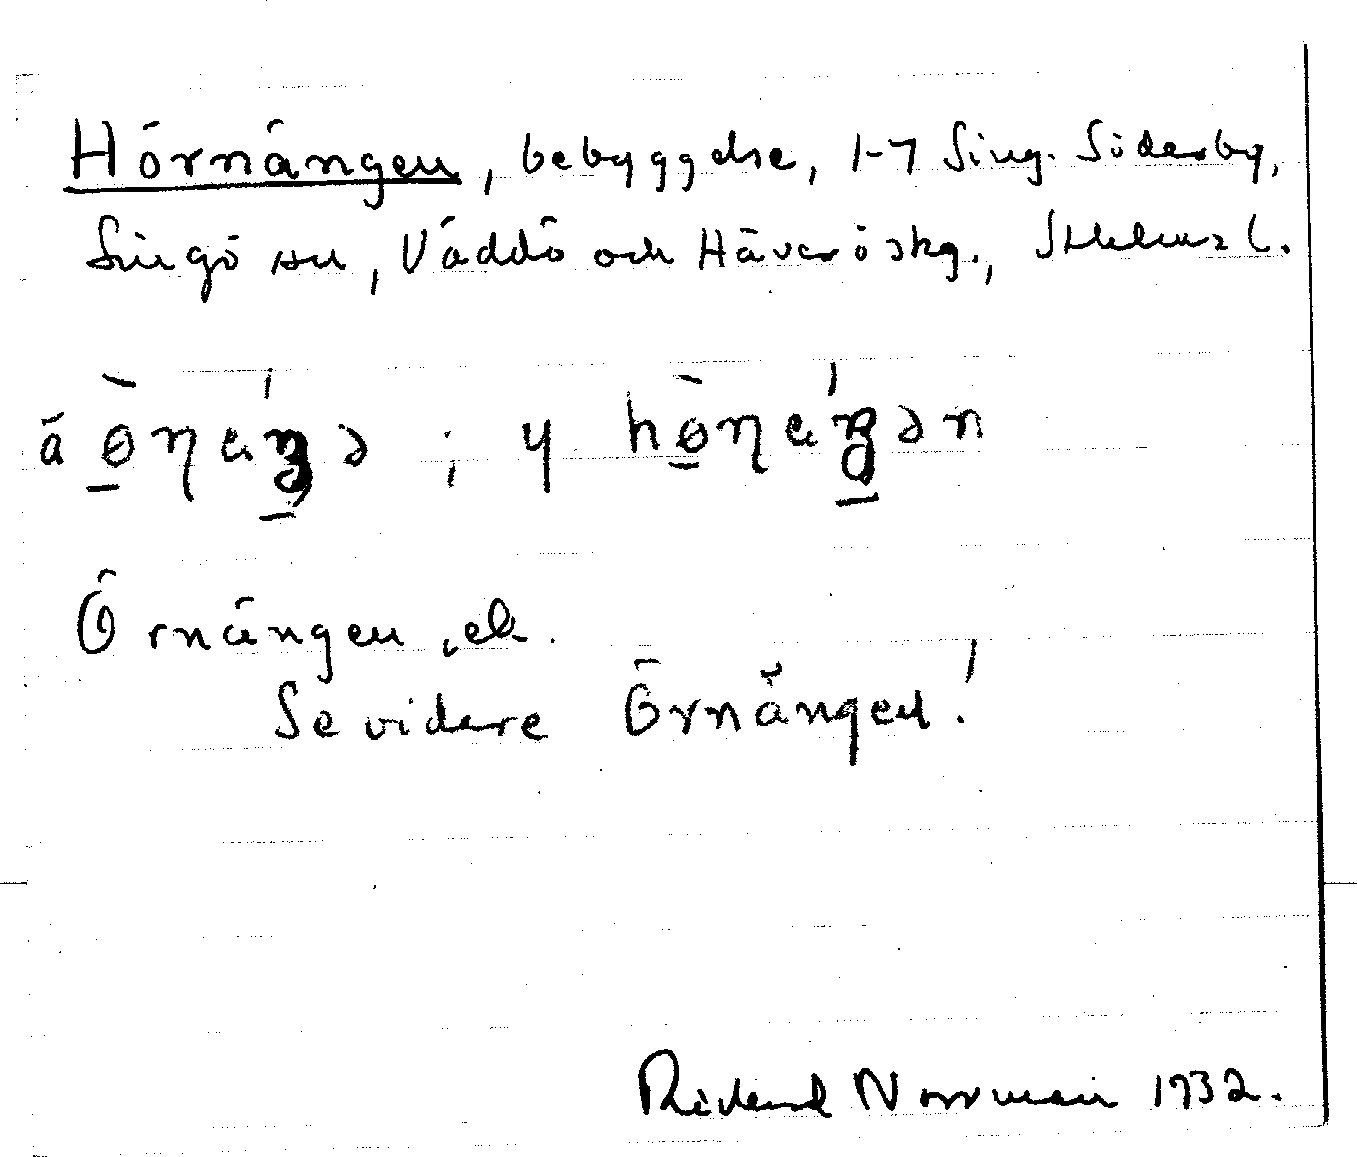 Hörnängen, bebyggelse, 1-7 Sing. Söderby,
Singö sn, Väddö och Häverö skg., Sthlms l.
Örnängen, el.
Se vidare Örnängen!
Rickard Norrman 1932.